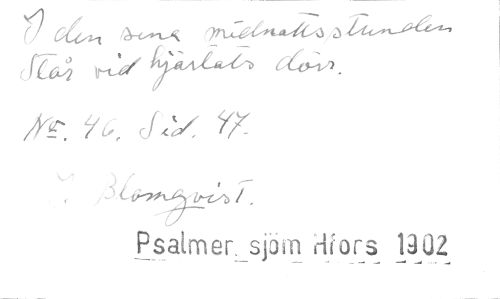 I den sena midnattsstunden
Står vid hjärtats dörr.
No. 46. Sid. 47.
J. Blomqvist.
Psalmer. sjöm Hfors 1902